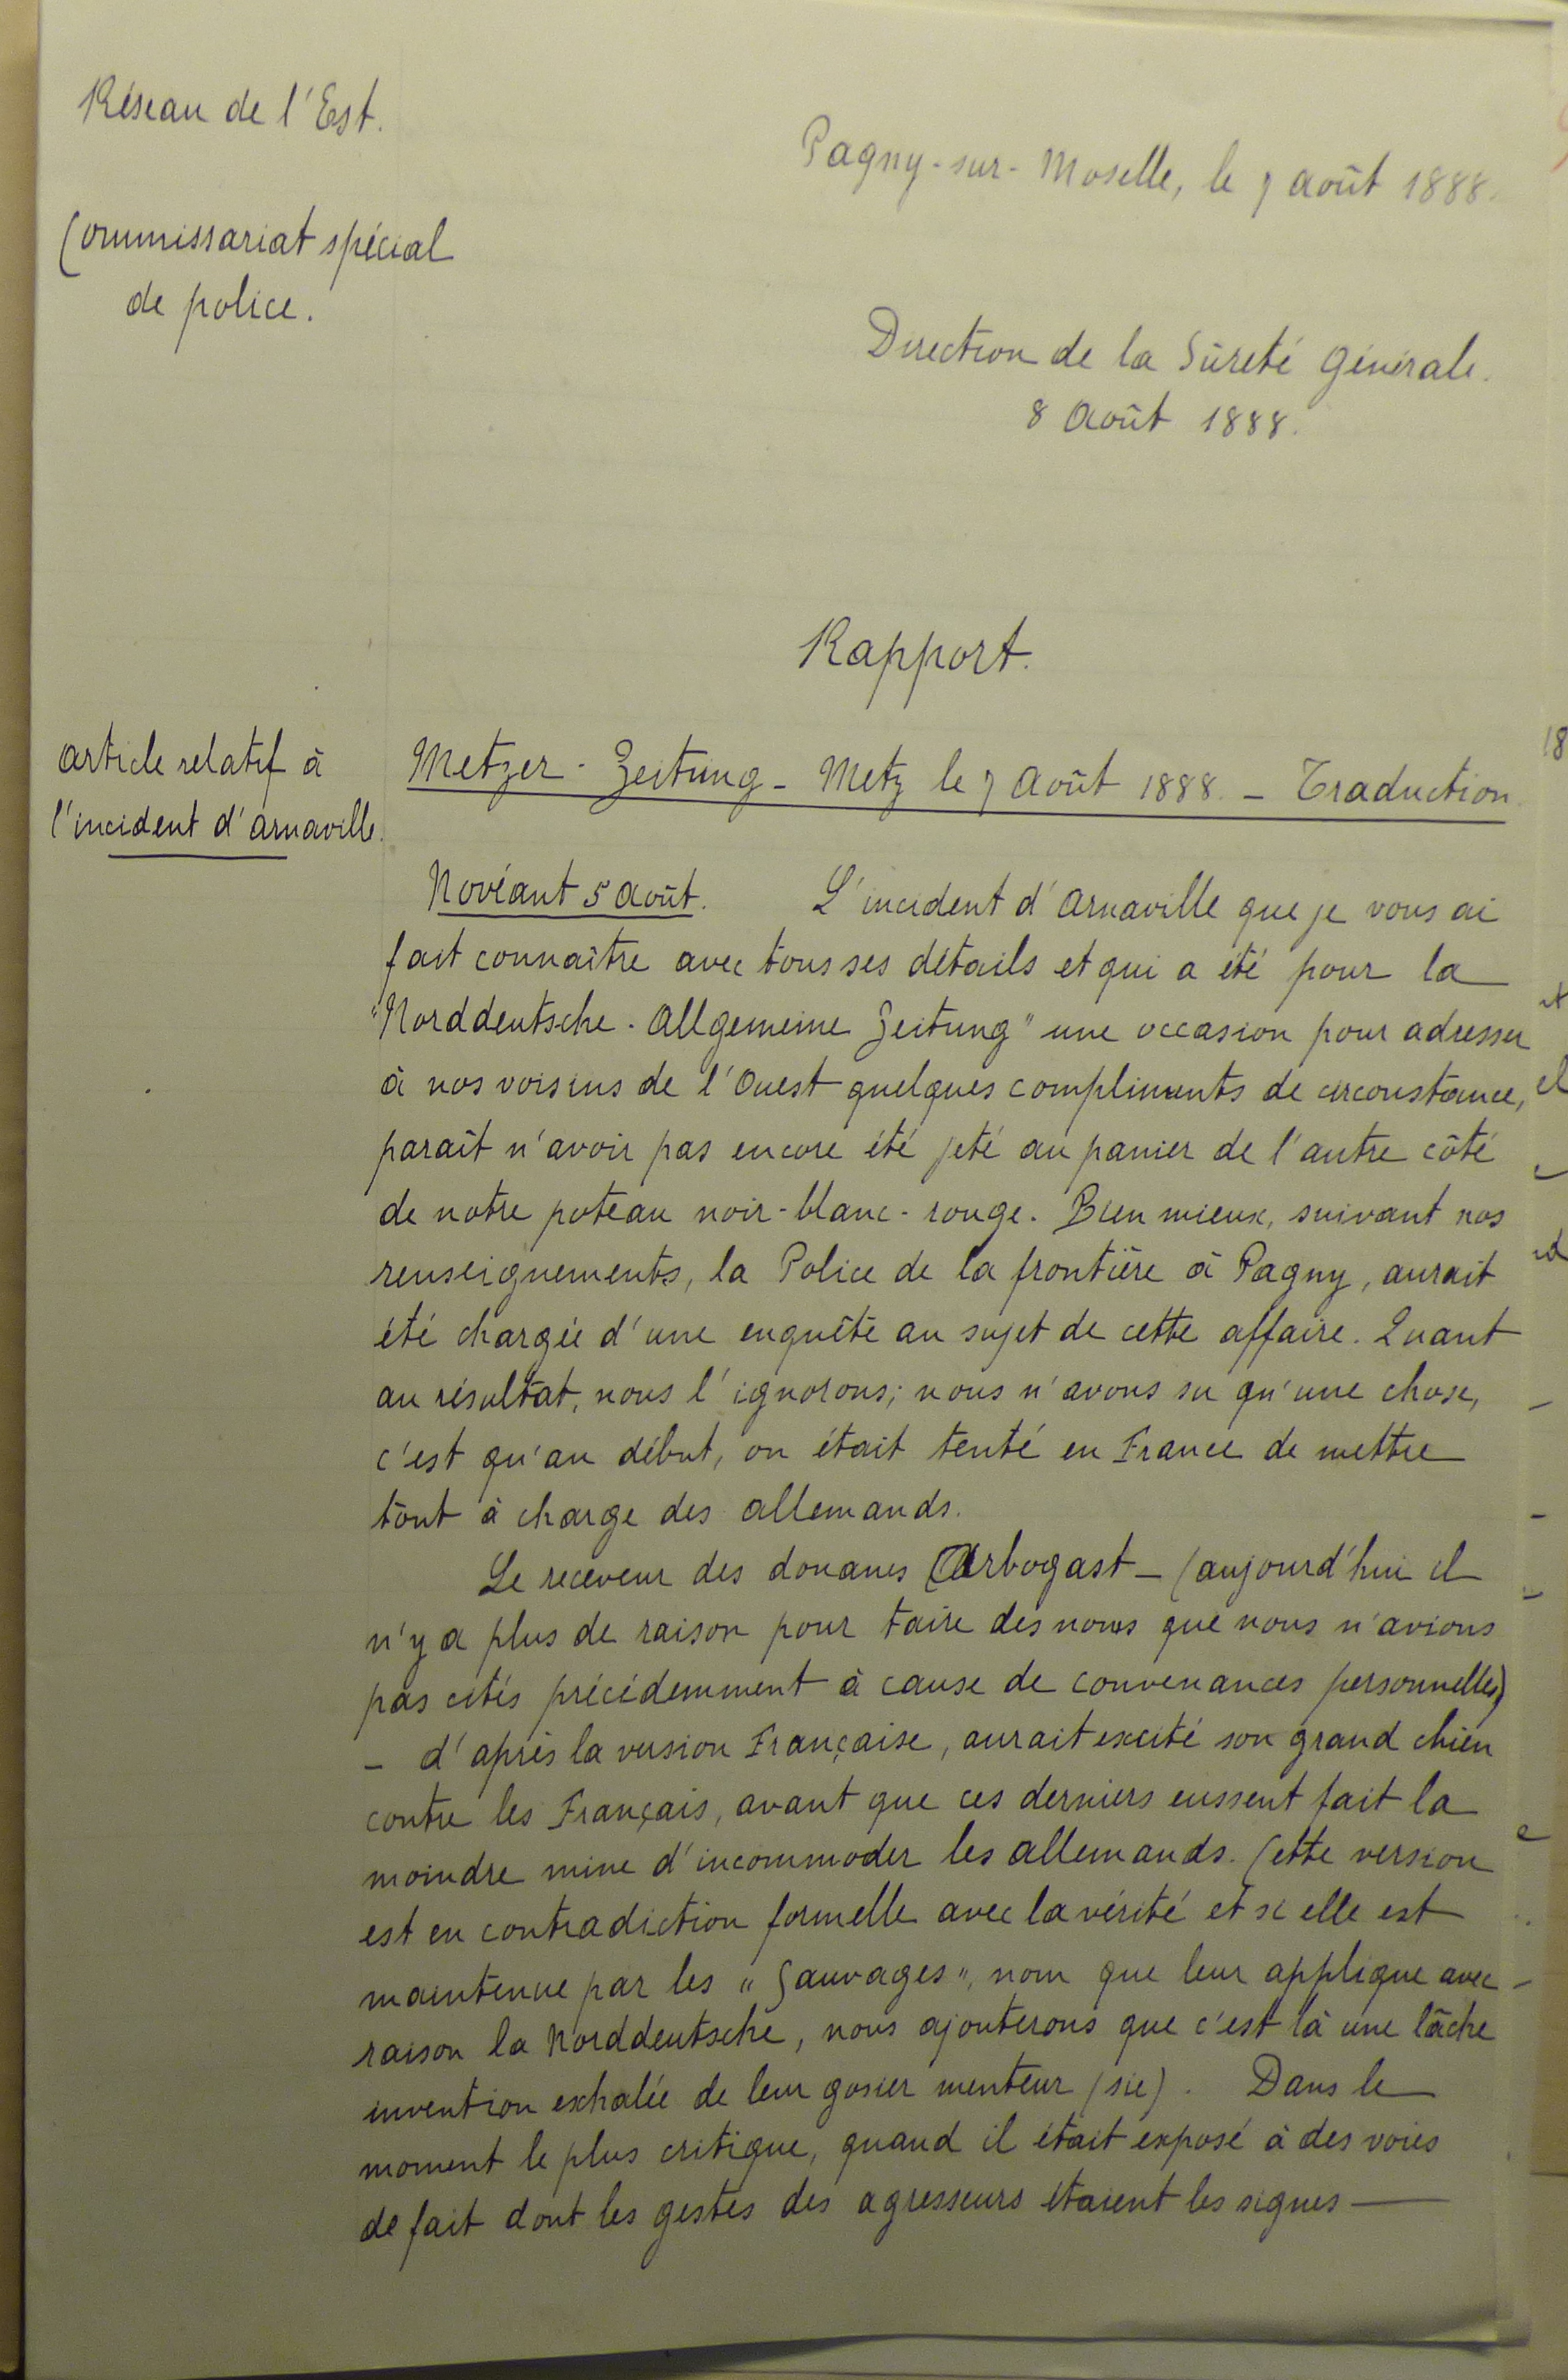 Réseau de l'Est.
Pagny-sur-Moselle, le 7 août 1888.
Commissariat spécial
de police.
Direction de la Sûreté Générale.
8 Août 1888.
Rapport.
Article relatif à
l'incident d'Arnaville.
Metzer-Zeitung - Metz le 7 Août 1888. - Traduction.
Novéant 5 Août. L'incident d'Arnaville que je vous ai
fait connaître avec tous ses détails et qui a été pour la
"Norddeutsche-Allgemeine Zeitung" une occasion pour adresser
à nos voisins de l'Ouest quelques compliments de circonstance,
paraît n'avoir pas encore été jeté au panier de l'autre côté
de notre poteau noir-blanc-rouge. Bien mieux, suivant nos
renseignements, la Police de la frontière à Pagny, aurait
été chargée d'une enquête au sujet de cette affaire. Quant
au résultat, nous l'ignorons; nous n'avons su qu'une chose,
c'est qu'au début, on était tenté en France de mettre
tout à charge des allemands.
Le receveur des douanes Arbogast - (aujourd'hui il
n'y a plus de raison pour taire des noms que nous n'avions
pas cités précédemment à cause de convenances personnelles)
- d'après la version Française, aurait excité son grand chien
contre les Français, avant que ces derniers eussent fait la
moindre mine d'incommoder les allemands. Cette version
est en contradiction formelle avec la vérité et si elle est
maintenue par les "Sauvages", nom que leur applique avec
raison la Norddeutsche, nous ajouterons que c'est là une lâche
invention exhalée de leur gosier menteur (sic). Dans le
moment le plus critique, quand il était exposé à des voies
de fait dont les gestes des agresseurs étaient les signes